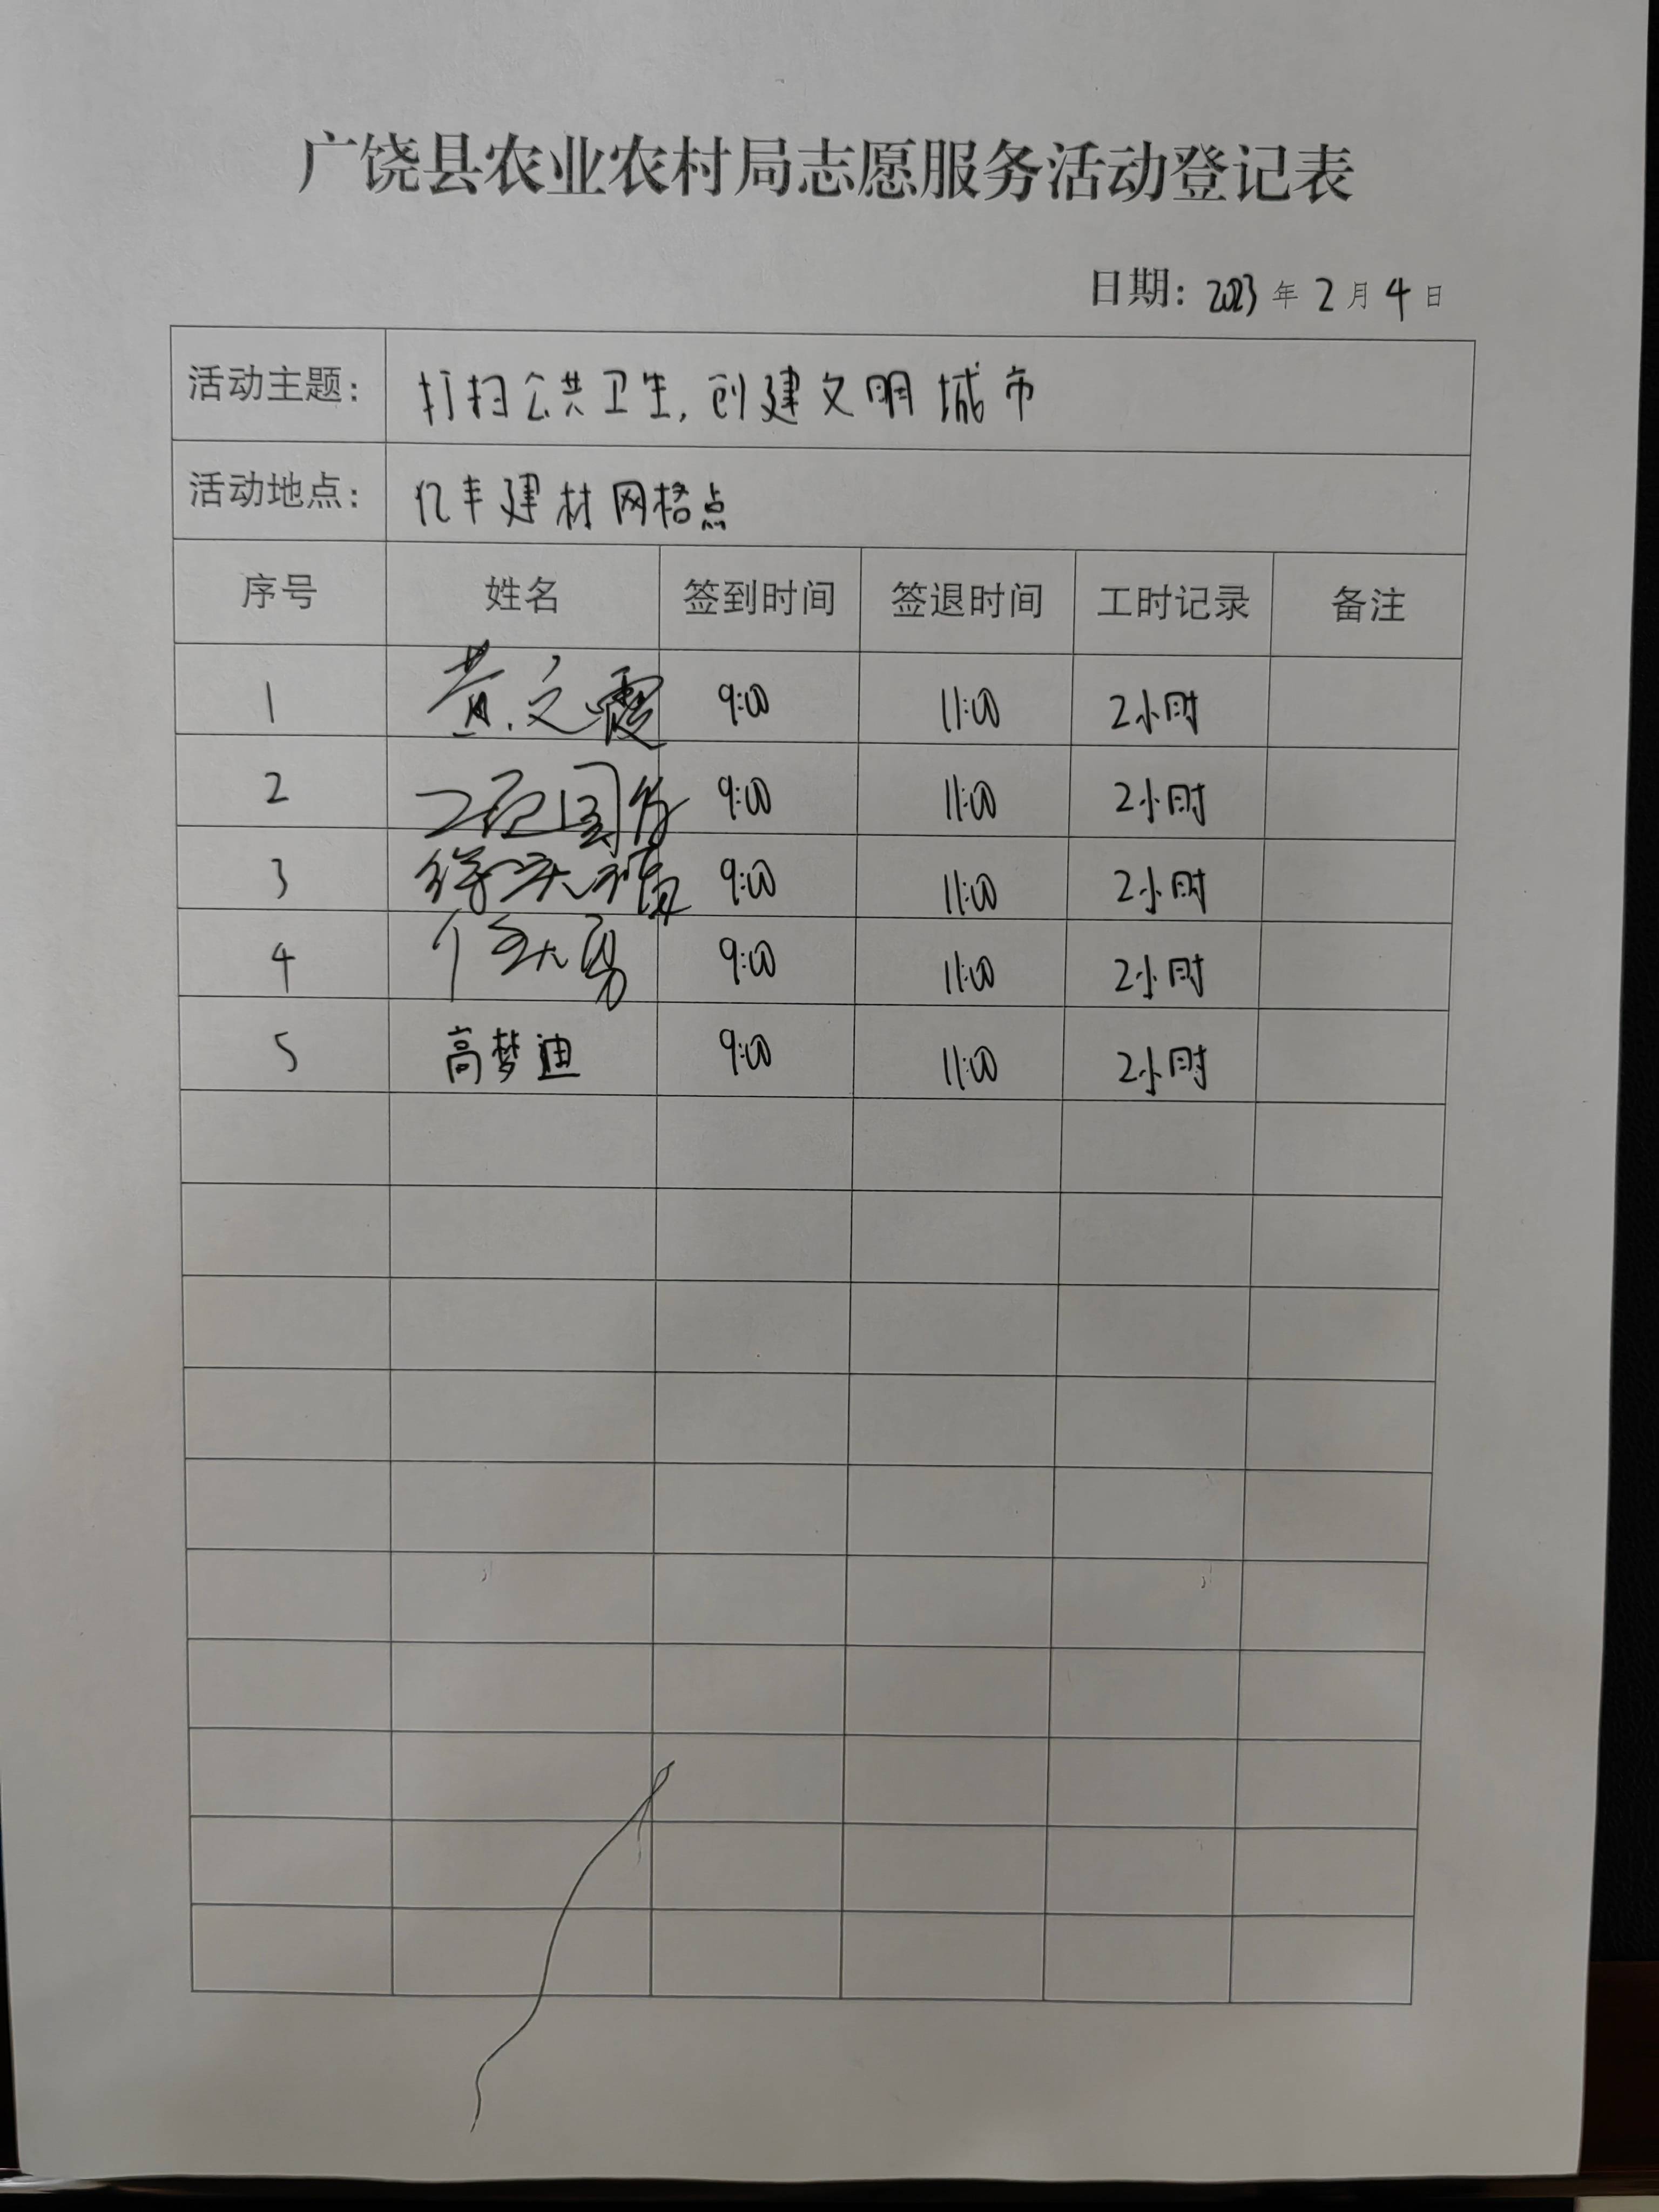 广饶县农业农村局志愿服务活动登记表
日期: 2023 年 2 月 4 日
活动主题: 打扫公共卫生,创建文明城市
活动地点: 亿丰建材网格点
序号 姓名 签到时间 签退时间 工时记录 备注
1 黄文霞 9:00 11:00 2小时
2 9:00 11:00 2小时
3 9:00 11:00 2小时
4 9:00 11:00 2小时
5 高梦迪 9:00 11:00 2小时